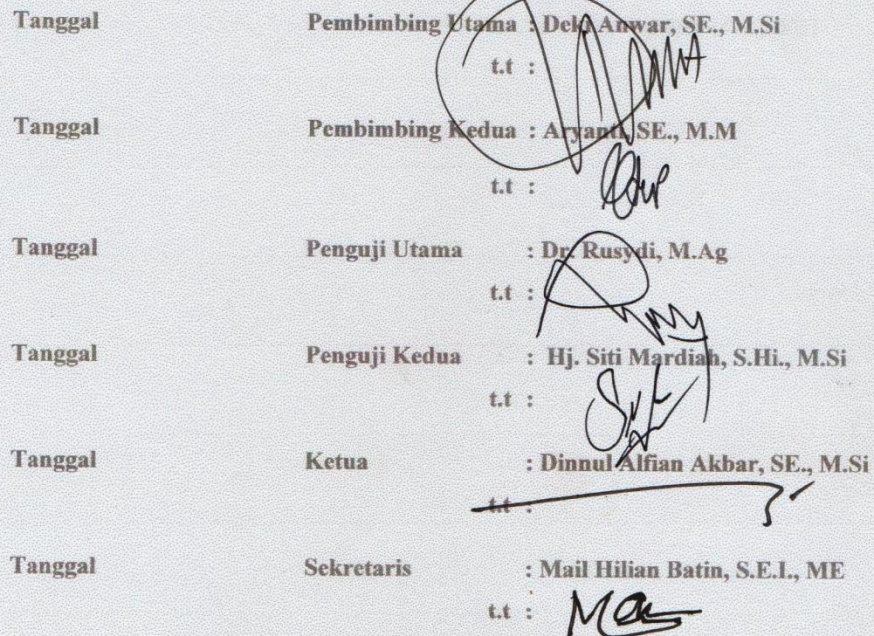 Tanggal Pembimbing Utama : Deki Anwar, SE., M.Si
t.t :
Tanggal Pembimbing Kedua : Aryanti, SE., M.M
t.t :
Tanggal Penguji Utama : Dr. Rusydi, M.Ag
t.t :
Tanggal Penguji Kedua : Hj. Siti Mardiah, S.Hi., M.Si
t.t :
Tanggal Ketua : Dinnul Alfian Akbar, SE., M.Si
t.t :
Tanggal Sekretaris : Mail Hilian Batin, S.E.I., ME
t.t :